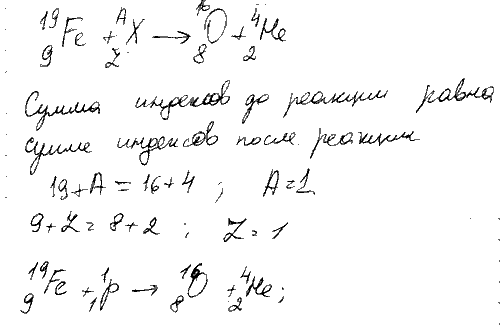 ¹⁹₉Fe + ᴬ_ZX → ¹⁶₈O + ⁴₂He
Сумма индексов до реакции равна
сумме индексов после реакции
19+A = 16+4 ; A=1
9+Z = 8+2 ; Z = 1
¹⁹₉Fe + ¹₁p → ¹⁶₈O + ⁴₂He;